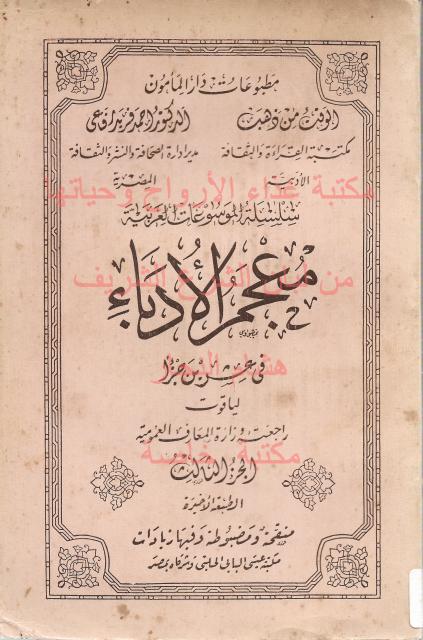 مطبوعات دار المأمون
الوقت من ذهب الدكتور أحمد فريد رفاعي
مكتبة القراءة والثقافة مدير إدارة الصحافة والنشر والثقافة
الأدبية المصرية
مكتبة غذاء الأرواح وحياتها
سلسلة الموسوعات العربية
معجم الأدباء
في عشرين جزءا
هشام
لياقوت
راجعته وزارة المعارف العمومية
مكتبة خاصة
الجزء الثالث
الطبعة الأخيرة
منقحة ومضبوطة وفيها زيادات
مكتبة عيسى البابي الحلبي وشركاه بمصر